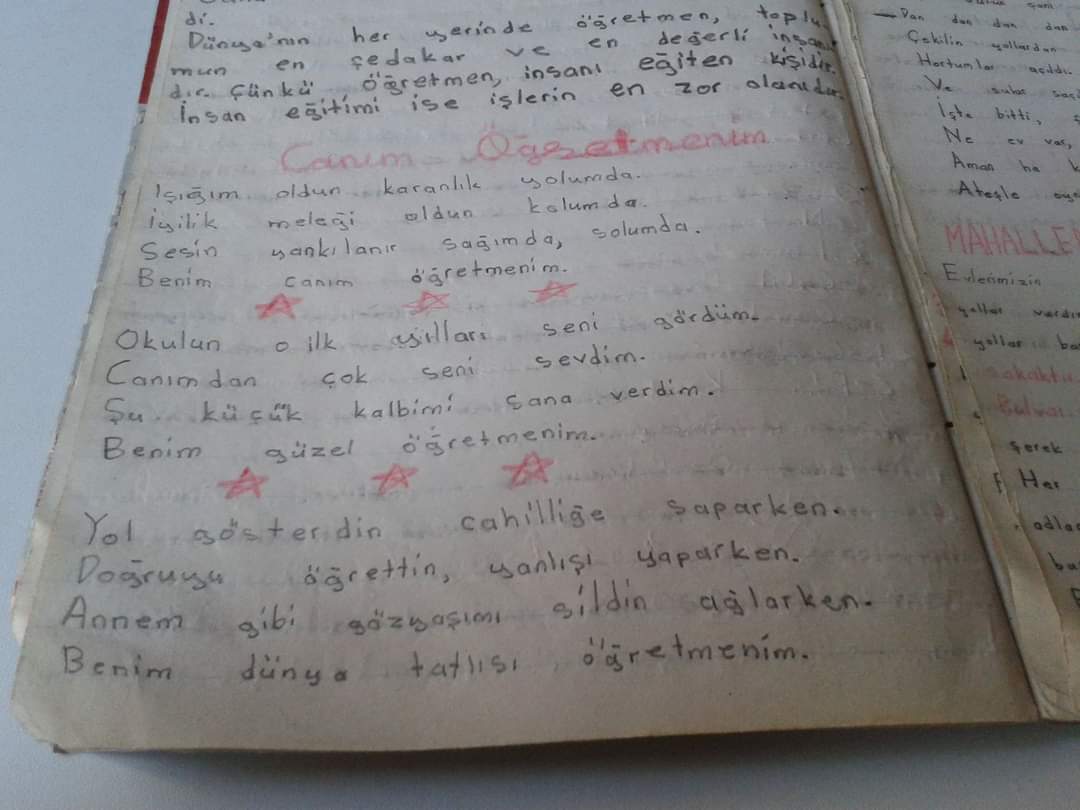 di.
Dünya'nın her yerinde öğretmen, toplu
mun en fedakar ve en değerli insanı
dır. Çünkü öğretmen, insanı eğiten kişidir.
İnsan eğitimi ise işlerin en zor olanıdır.
Canım Öğretmenim
Işığım oldun karanlık yolumda.
İyilik meleği oldun kolumda.
Sesin yankılanır sağımda, solumda.
Benim canım öğretmenim.
Okulun o ilk seni gördüm.
Canımdan çok seni sevdim.
Şu küçük kalbimi sana verdim.
Benim güzel öğretmenim.
Yol gösterdin cahilliğe saparken.
Doğruyu öğrettin, yanlışı yaparken.
Annem gibi gözyaşımı sildin ağlarken.
Benim dünya tatlısı öğretmenim.
—Dan dan dan dan
Çekilin yollardan
Hortumlar açıldı.
Ve sular
İşte bitti,
Ne ev var,
Aman ha
Ateşle
MAHALLE
Evlerimizin
yollar vardır
yollar
sokaktır
Bulvar
gerek
Her